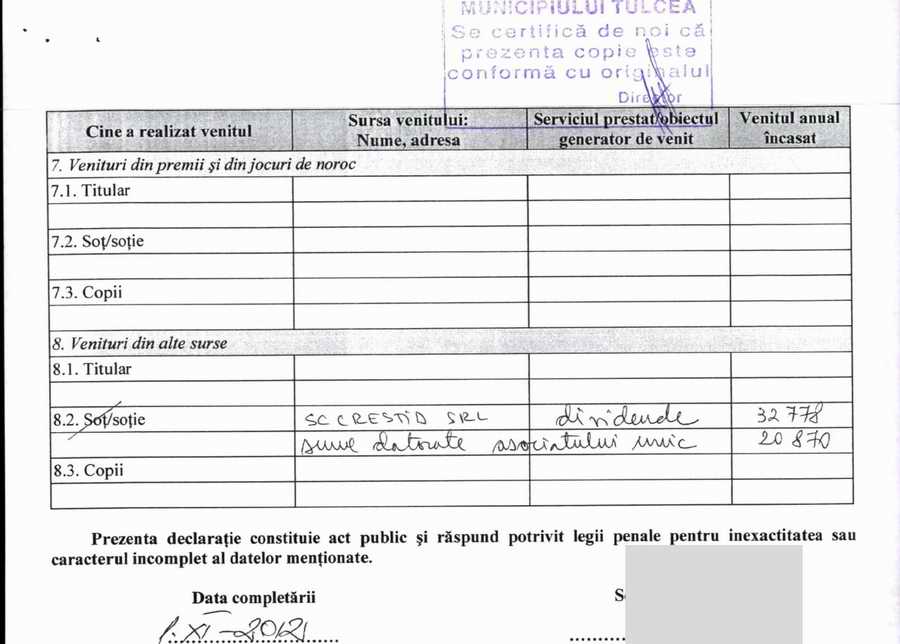 MUNICIPIULUI TULCEA
Se certifică de noi că
prezenta copie este
conformă cu originalul
Director
Cine a realizat venitul
Sursa venitului:
Nume, adresa
Serviciul prestat/obiectul
generator de venit
Venitul anual
încasat
7. Venituri din premii şi din jocuri de noroc
7.1. Titular
7.2. Soţ/soţie
7.3. Copii
8. Venituri din alte surse
8.1. Titular
8.2. Soţ/soţie SC CRESTID SRL dividende 32 778
sume datorate asociatului unic 20 870
8.3. Copii
Prezenta declaraţie constituie act public şi răspund potrivit legii penale pentru inexactitatea sau
caracterul incomplet al datelor menţionate.
Data completării
1.XI-2012